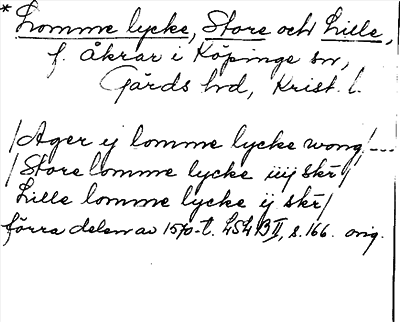 * Lomme lycke, Store och Lille,
f. åkrar i Köpinge sn,
Gärds hd, Krist. l.
/Ager ij lomme lycke wong/---
/Store lomme lycke iiij skr/
Lille lomme lycke ij skr/
förra delen av 1570-t. LSLBII, s. 166. orig.